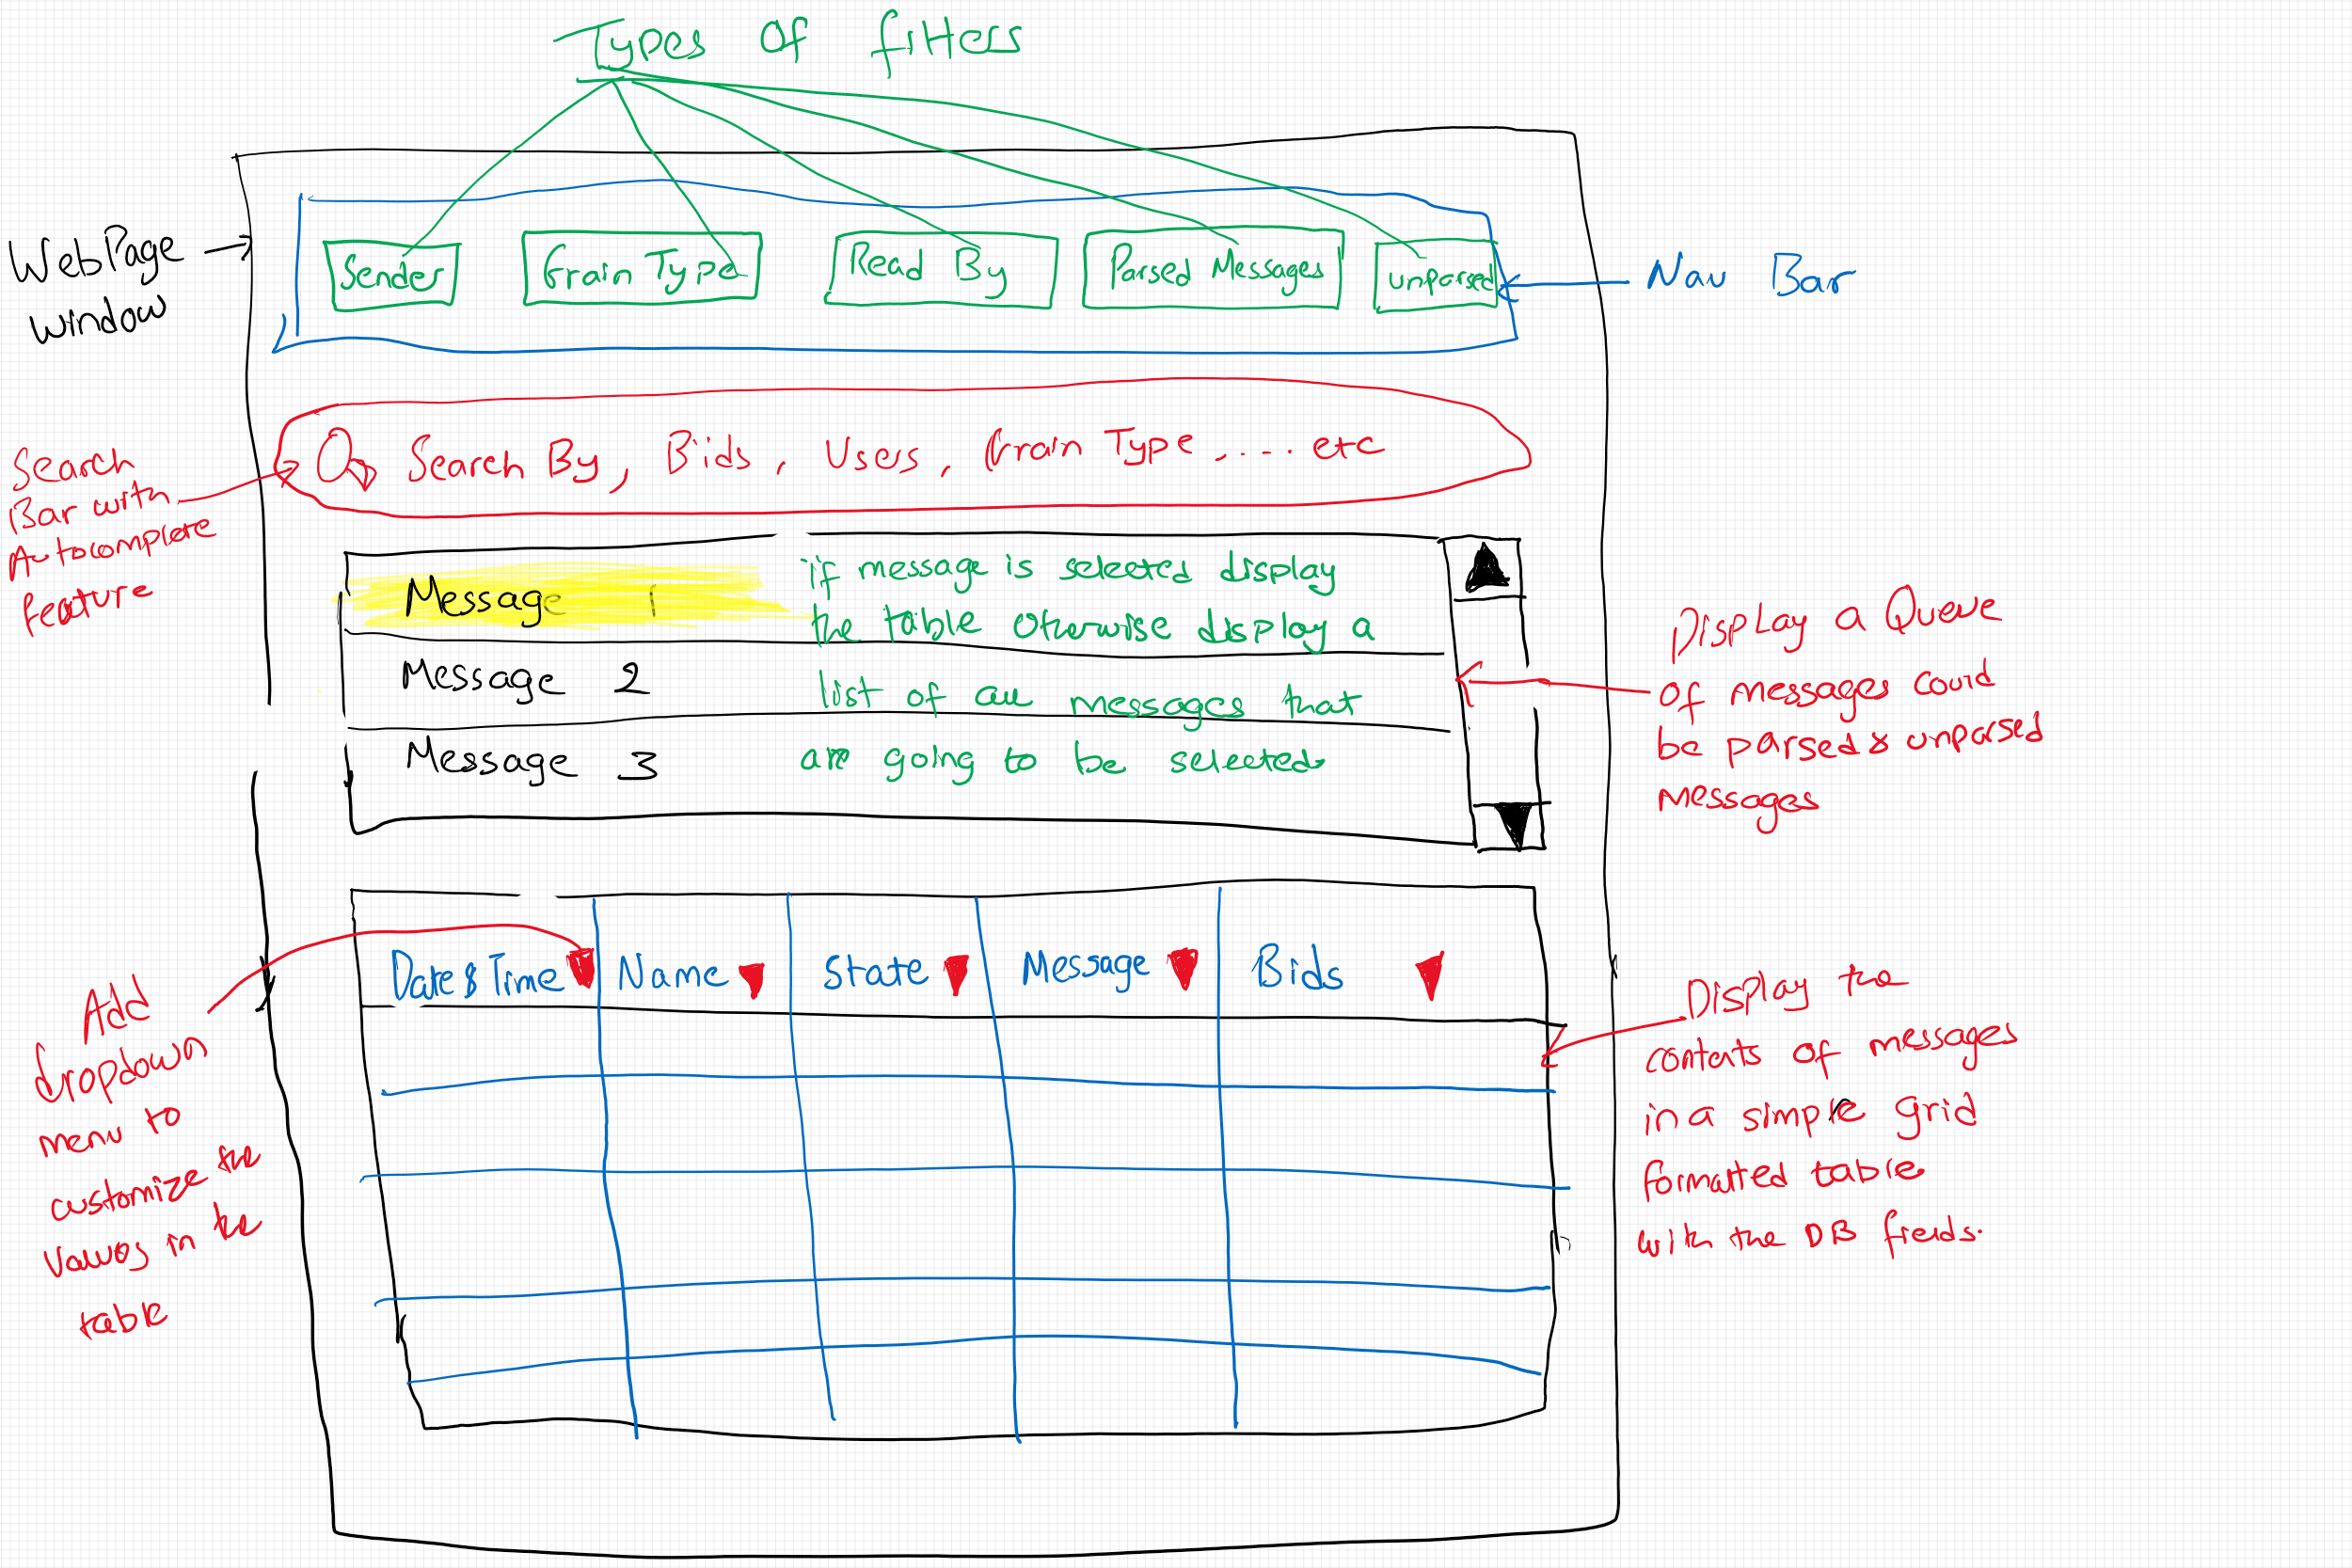 Types of filters
WebPage
window
Sender
Grain Type
Read By
Parsed Messages
unparsed
Nav Bar
Search
Bar with
Autocomplete
feature
Search By, Bids, Users, Grain Type, .... etc
Message 1
Message 2
Message 3
if message is selected display
the table otherwise display a
list of all messages that
are going to be selected
Display a Queue
of messages could
be parsed & unparsed
messages
Add
dropdown
menu to
customize the
values in the
table
Date & Time
Name
State
Message
Bids
Display the
contents of messages
in a simple grid
formatted table
with the DB fields.